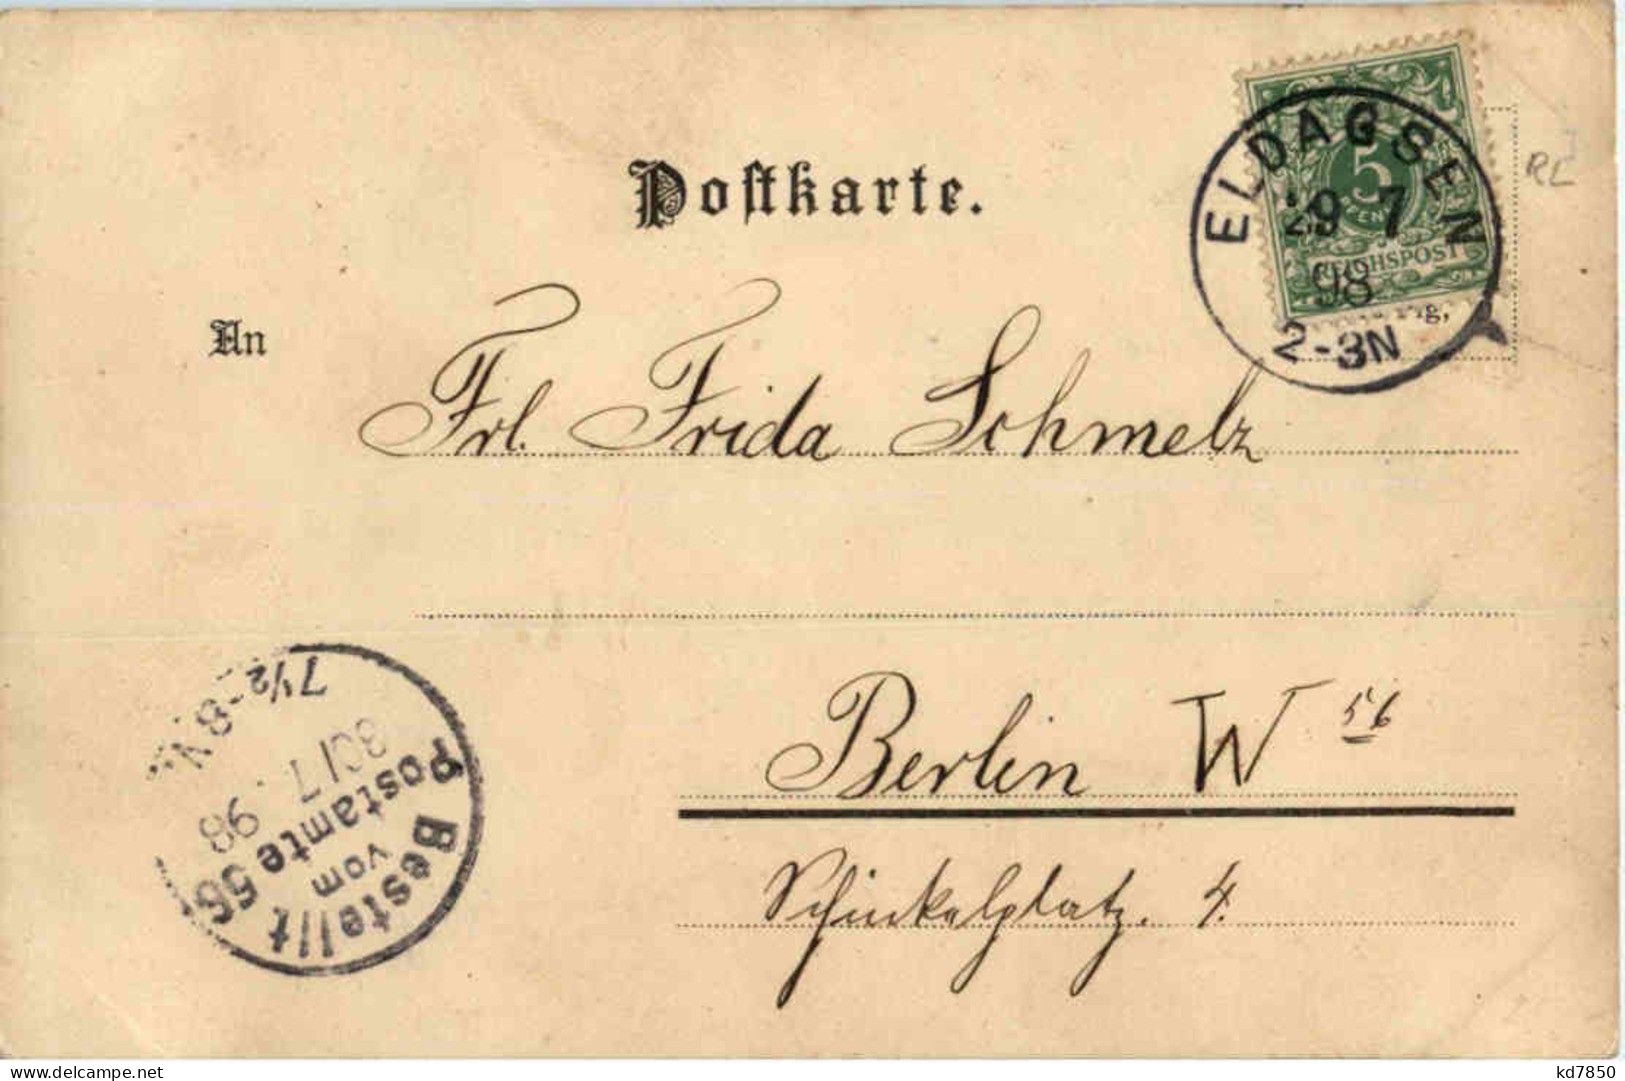 Postkarte.
RL
ELDAGSEN
5
REICHSPOST
29 7
98
2-3N
An
Frl. Frida Schmelz
Berlin W 56
Schinkelplatz. 4.
Bestellt
vom
Postamte 56
30/7 98
7½-8V.
kd7850
delcampe.net